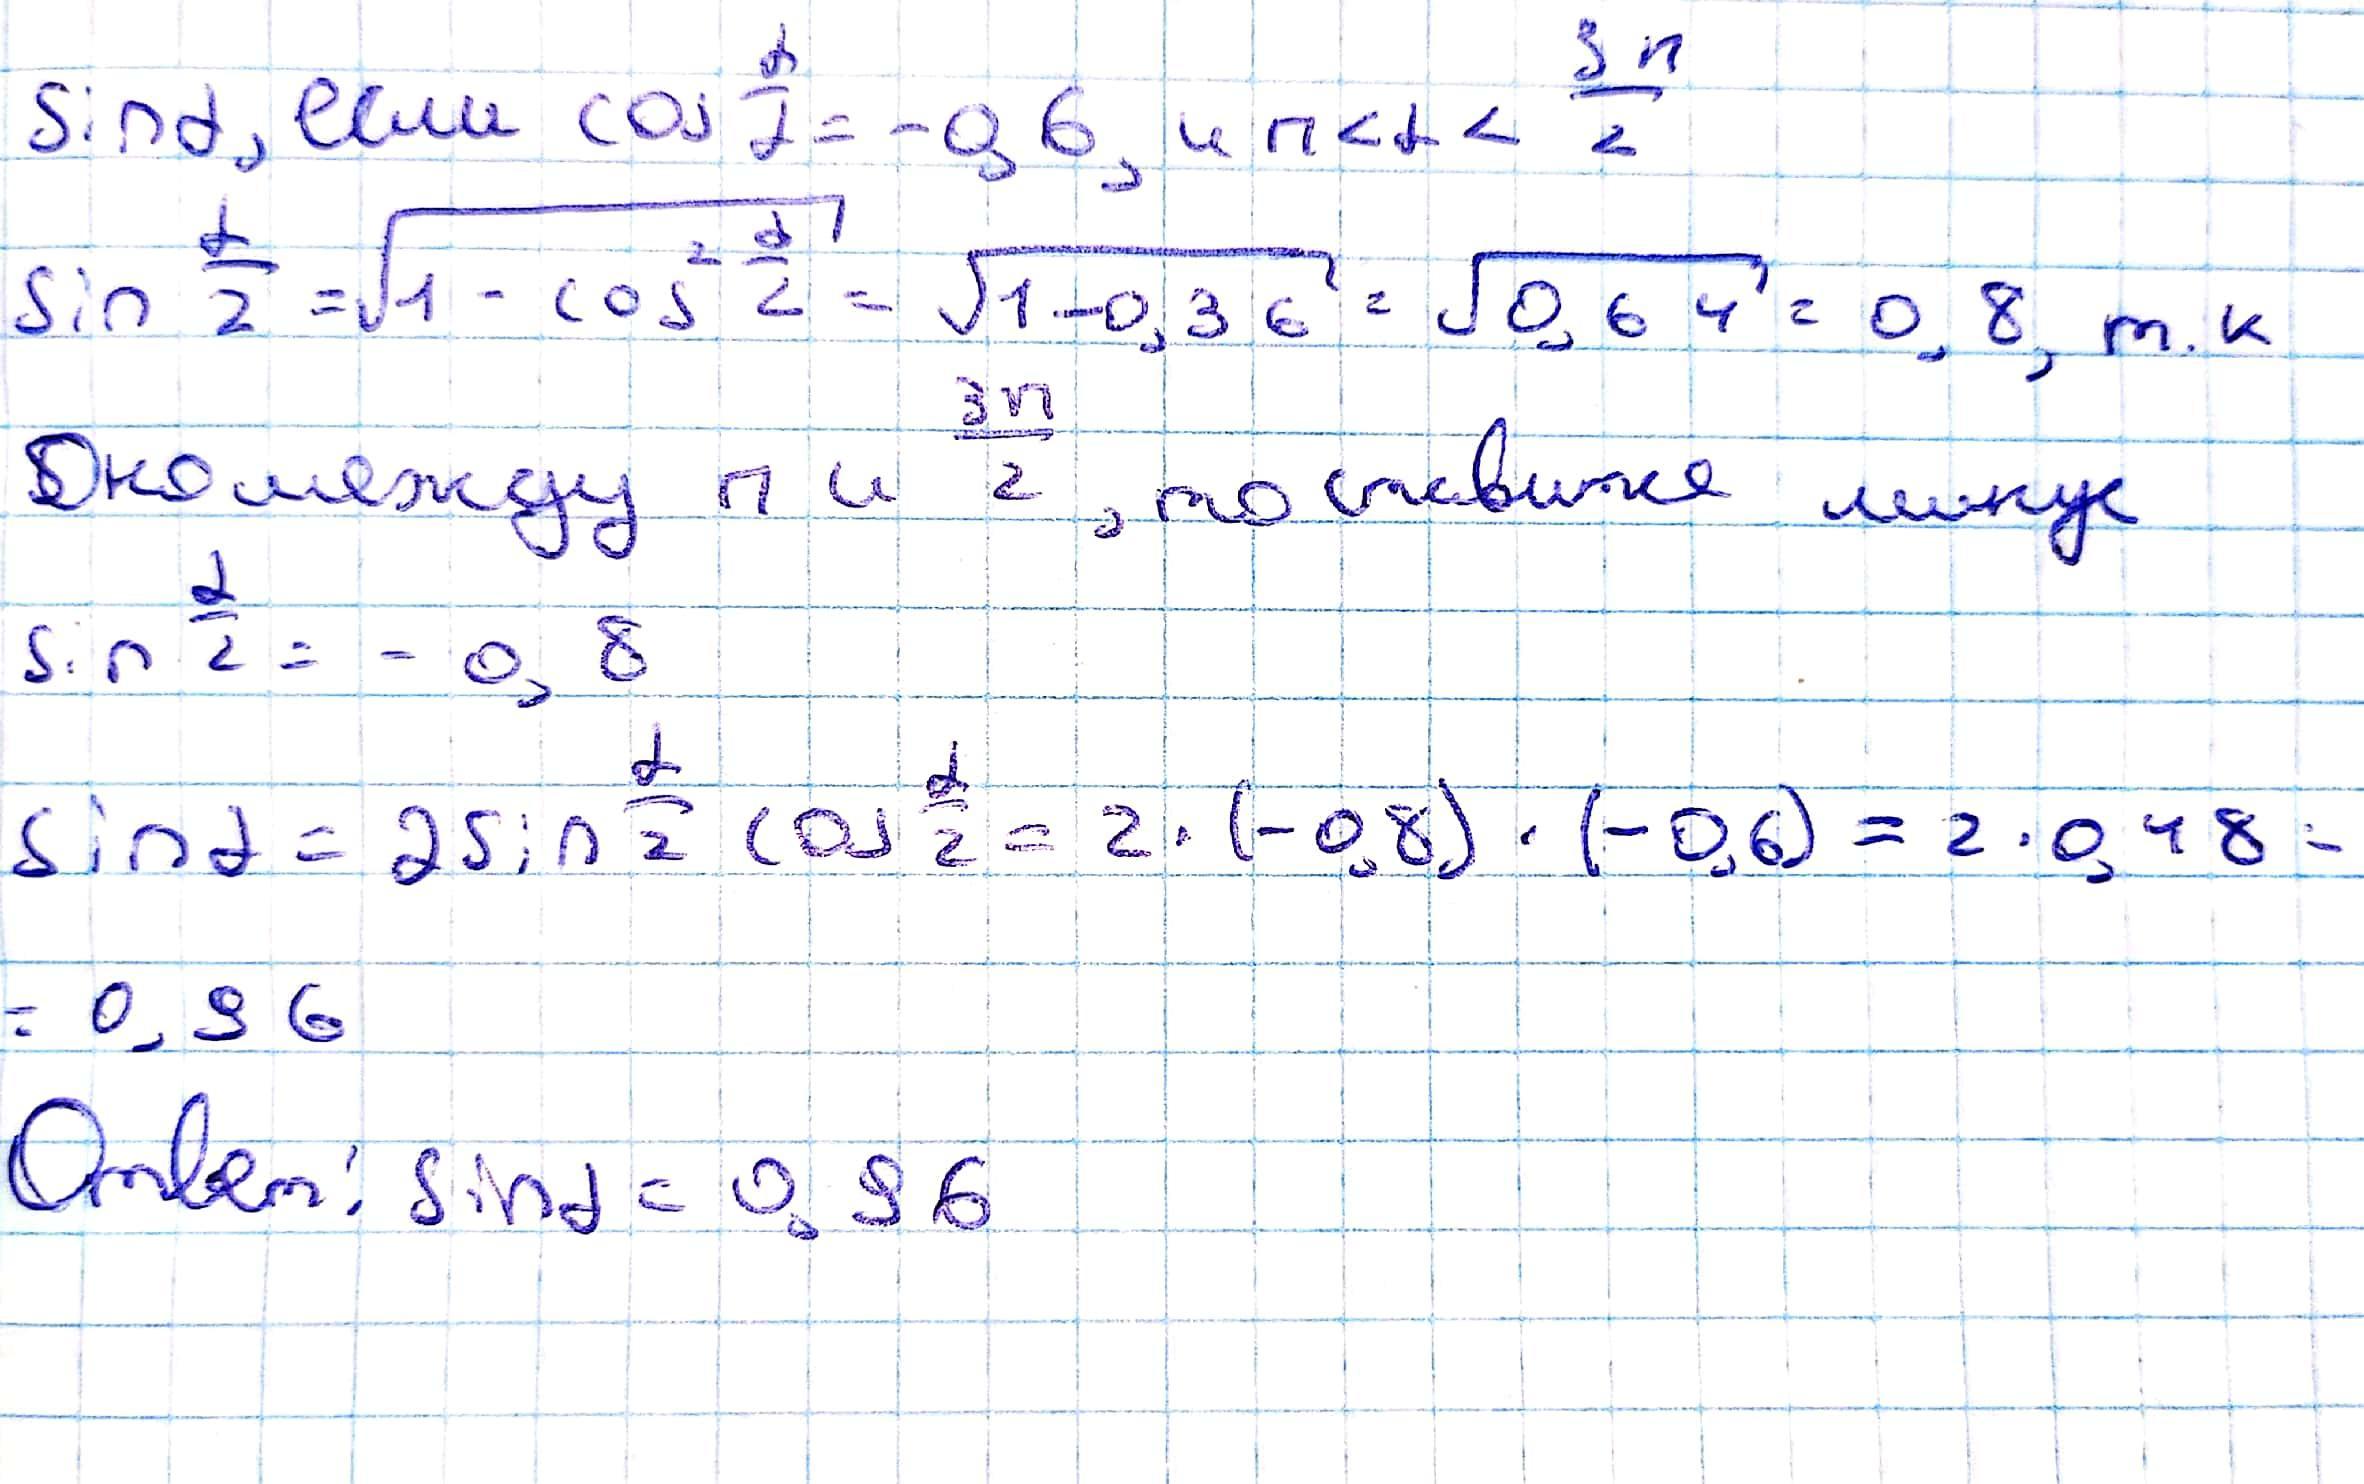 sinα, если cos α/2 = -0,6, и π<α< 3π/2
sin α/2 = √1 - cos² α/2 = √1-0,36 = √0,64 = 0,8, т.к
оно между π и 3π/2, то ставится минус
sin α/2 = - 0,8
sinα = 2sin α/2 cos α/2 = 2·(-0,8)·(-0,6) = 2·0,48 =
= 0,96
Ответ: sinα = 0,96